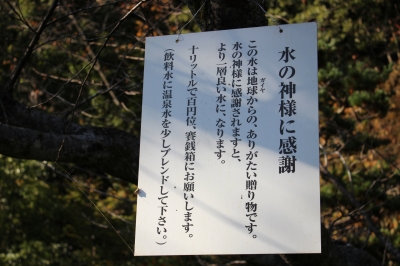 水の神様に感謝
この水は地球からの、ありがたい贈り物です。
ガイヤ
水の神様に感謝されますと、
より一層良い水に、なります。
十リットルで百円位、賽銭箱にお願いします。
（飲料水に温泉水を少しブレンドして下さい。）